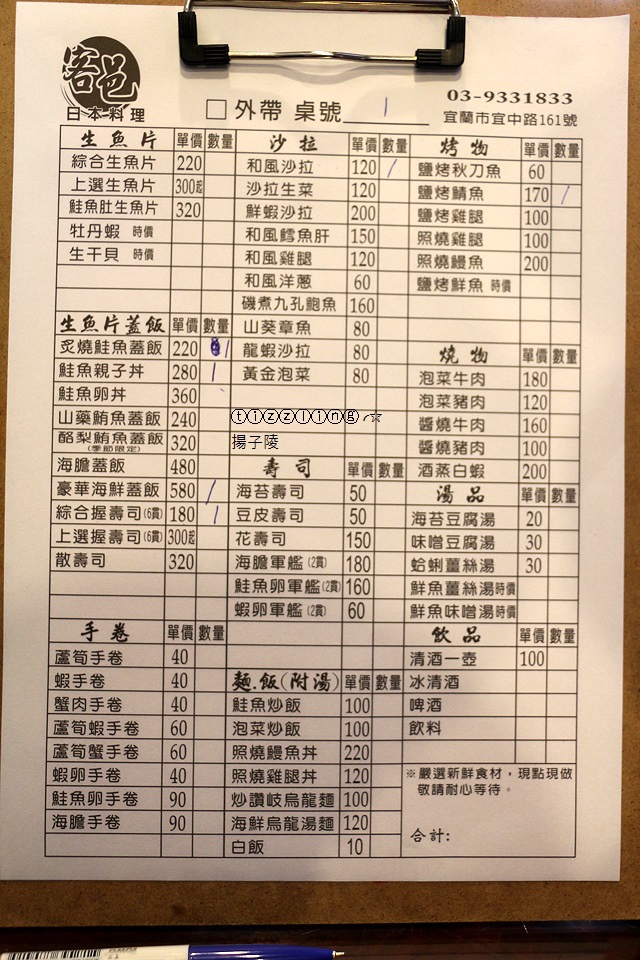 客邑
日本料理
03-9331833
□外帶 桌號 1
宜蘭市宜中路161號
生魚片 單價 數量
綜合生魚片 220
上選生魚片 300起
鮭魚肚生魚片 320
牡丹蝦 時價
生干貝 時價
生魚片蓋飯 單價 數量
炙燒鮭魚蓋飯 220 /
鮭魚親子丼 280 /
鮭魚卵丼 360
山藥鮪魚蓋飯 240
酪梨鮪魚蓋飯 320
(季節限定)
海膽蓋飯 480
豪華海鮮蓋飯 580 /
綜合握壽司(6貫) 180 /
上選握壽司(6貫) 300起
散壽司 320
手卷 單價 數量
蘆筍手卷 40
蝦手卷 40
蟹肉手卷 40
蘆筍蝦手卷 60
蘆筍蟹手卷 60
蝦卵手卷 40
鮭魚卵手卷 90
海膽手卷 90
沙拉 單價 數量
和風沙拉 120 /
沙拉生菜 120
鮮蝦沙拉 200
和風鱈魚肝 150
和風雞腿 120
和風洋蔥 60
磯煮九孔鮑魚 160
山葵章魚 80
龍蝦沙拉 80
黃金泡菜 80
ⓣⓘⓩⓩⓛⓘⓝⓖ╭☆
揚子陵
壽司 單價 數量
海苔壽司 50
豆皮壽司 50
花壽司 150
海膽軍艦(2貫) 180
鮭魚卵軍艦(2貫) 160
蝦卵軍艦(2貫) 60
麵.飯(附湯) 單價 數量
鮭魚炒飯 100
泡菜炒飯 100
照燒鰻魚丼 220
照燒雞腿丼 120
炒讚岐烏龍麵 100
海鮮烏龍湯麵 120
白飯 10
烤物 單價 數量
鹽烤秋刀魚 60
鹽烤鯖魚 170 /
鹽烤雞腿 100
照燒雞腿 100
照燒鰻魚 200
鹽烤鮮魚 時價
燒物 單價 數量
泡菜牛肉 180
泡菜豬肉 120
醬燒牛肉 160
醬燒豬肉 100
酒蒸白蝦 200
湯品 單價 數量
海苔豆腐湯 20
味噌豆腐湯 30
蛤蜊薑絲湯 30
鮮魚薑絲湯時價
鮮魚味噌湯時價
飲品 單價 數量
清酒一壺 100
冰清酒
啤酒
飲料
※嚴選新鮮食材，現點現做
敬請耐心等待。
合計: